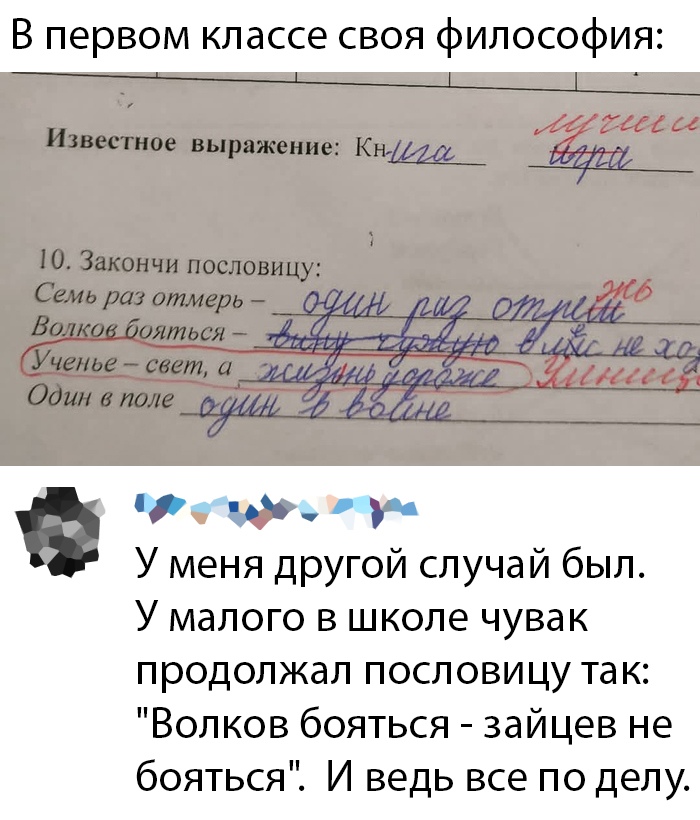 В первом классе своя философия:
лучши
Известное выражение: Книга игра
10. Закончи пословицу:
Семь раз отмерь – один раз отреж жь
Волков бояться – вину чужую в лес не хо
Ученье – свет, а жизнь дороже Умниц
Один в поле один в войне
У меня другой случай был.
У малого в школе чувак
продолжал пословицу так:
"Волков бояться - зайцев не
бояться". И ведь все по делу.